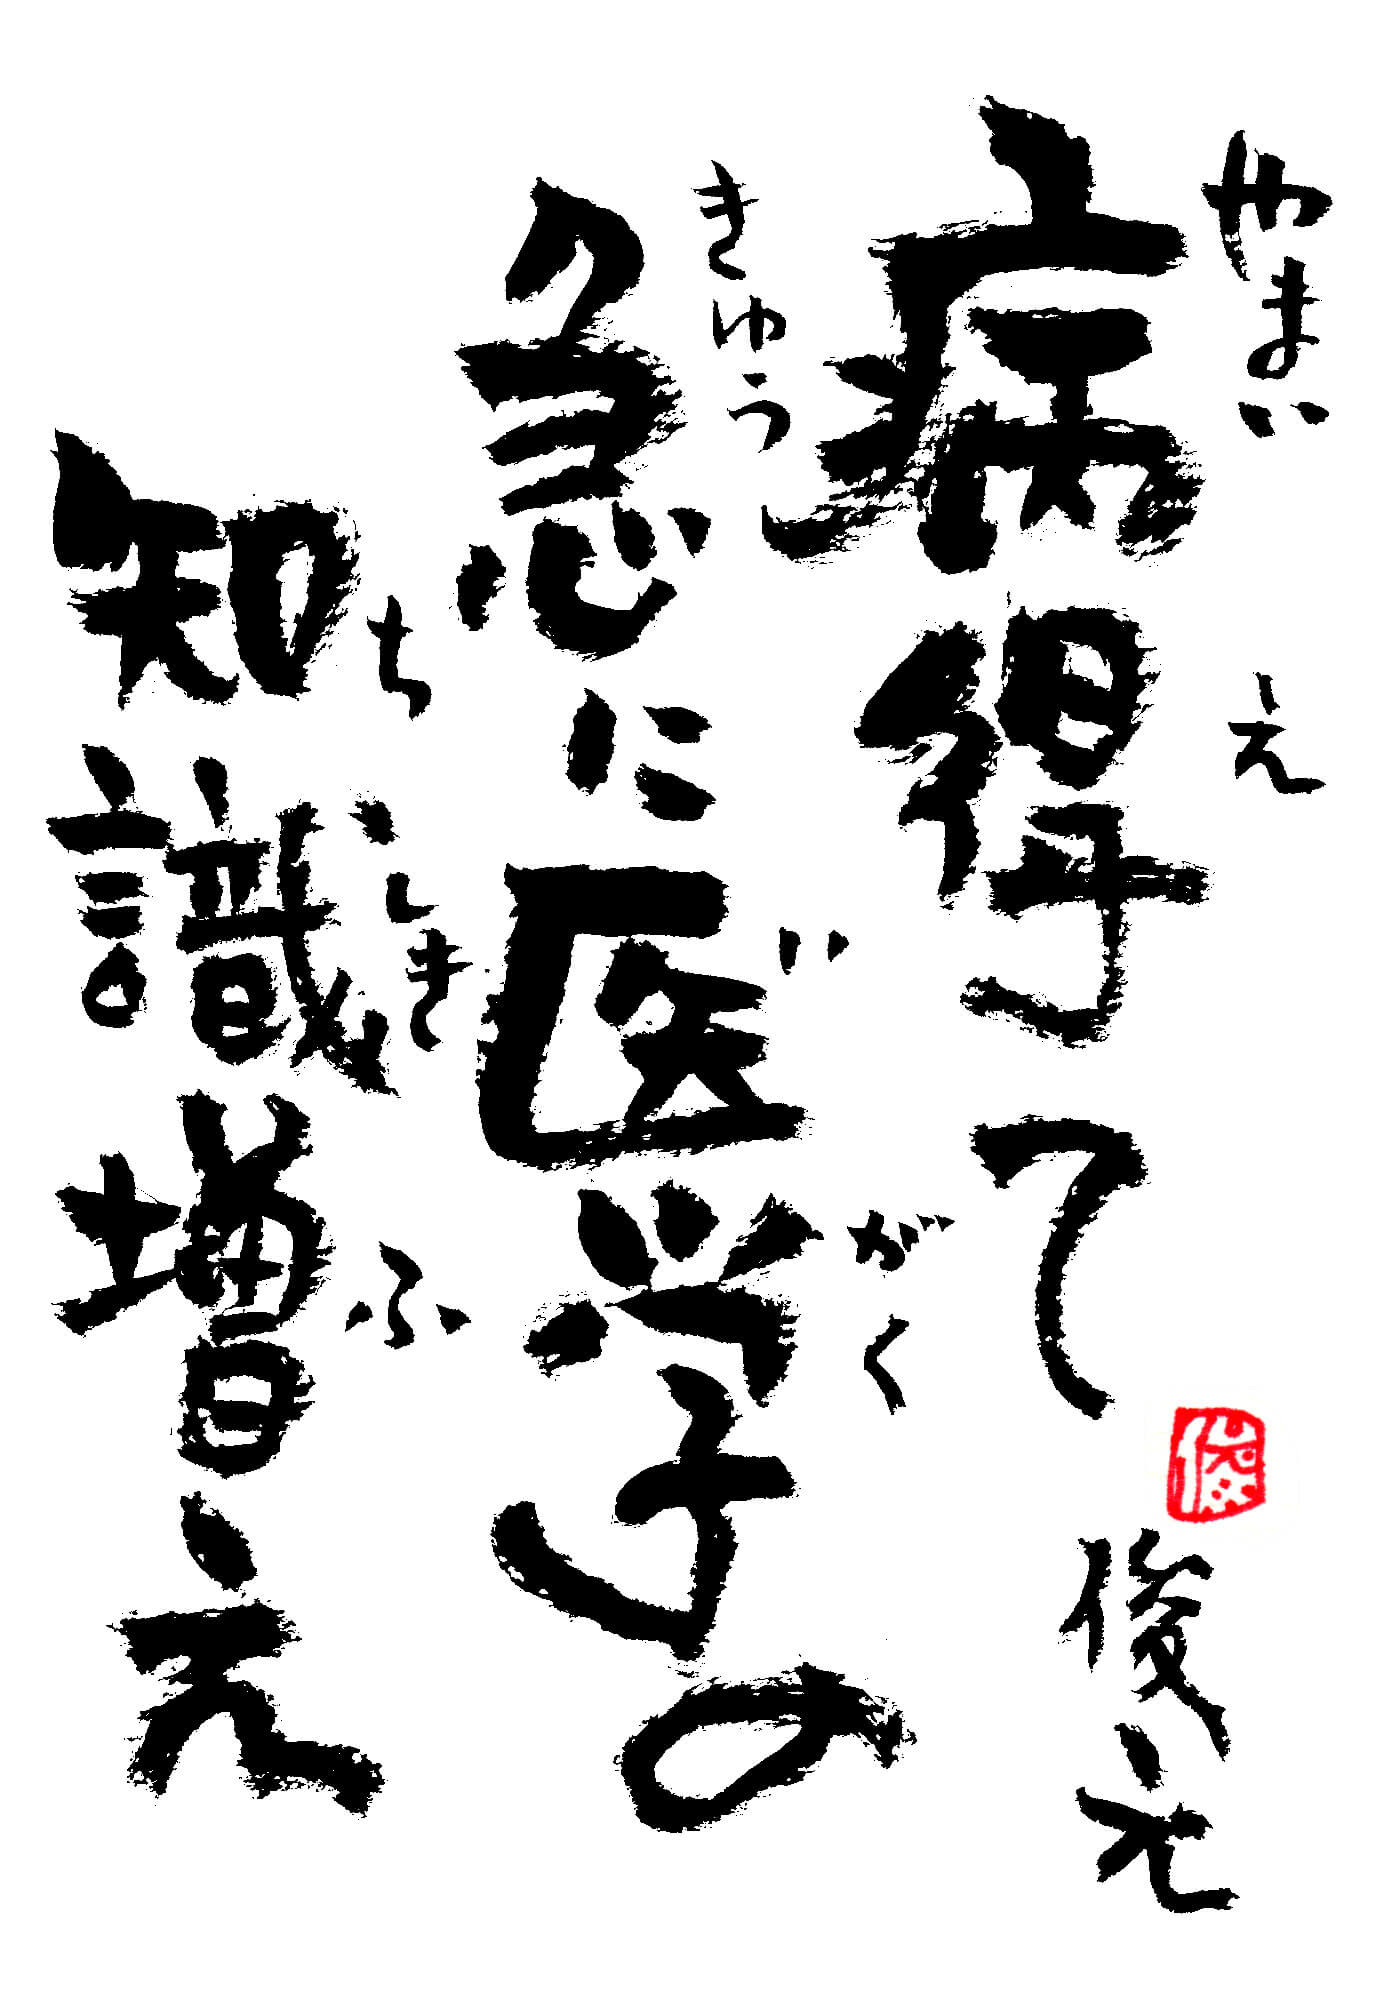 やまい え
病得て
きゅう い がく
急に医学の
ち しき ふ
知識増え
俊
俊元